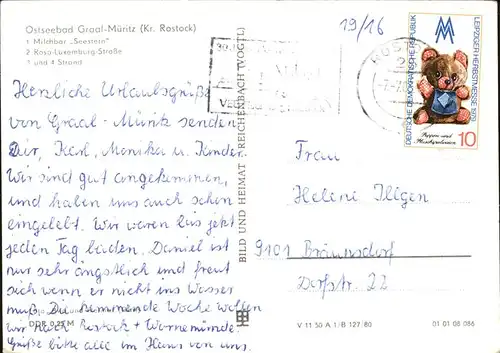 Ostseebad Graal-Müritz (Kr. Rostock)
1 Milchbar „Seestern"
2 Rosa-Luxemburg-Straße
3 und 4 Strand
Herzliche Urlaubsgrüße
von Graal-Müritz senden
Dir, Karl, Monika u. Kinder.
Wir sind gut angekommen,
und haben uns auch schon
eingelebt. Wir waren bis jetzt
jeden Tag baden. Daniel ist
nur sehr ängstlich und freut
sich wenn er nicht ins Wasser
muß. Die kommende Woche wollen
wir nach Rostock + Warnemünde.
Grüße bitte alle im Haus von uns.
DDR 0,25 M
BILD UND HEIMAT REICHENBACH (VOGTL)
19/16
LEIPZIGER HERBSTMESSE 1982
DEUTSCHE DEMOKRATISCHE REPUBLIK
Puppen und
Plüschspielwaren
10
Frau
Heleni Illgen
9101 Bräunsdorf
Dorfstr. 22
V 11 50 A 1/B 127/80
01 01 08 086